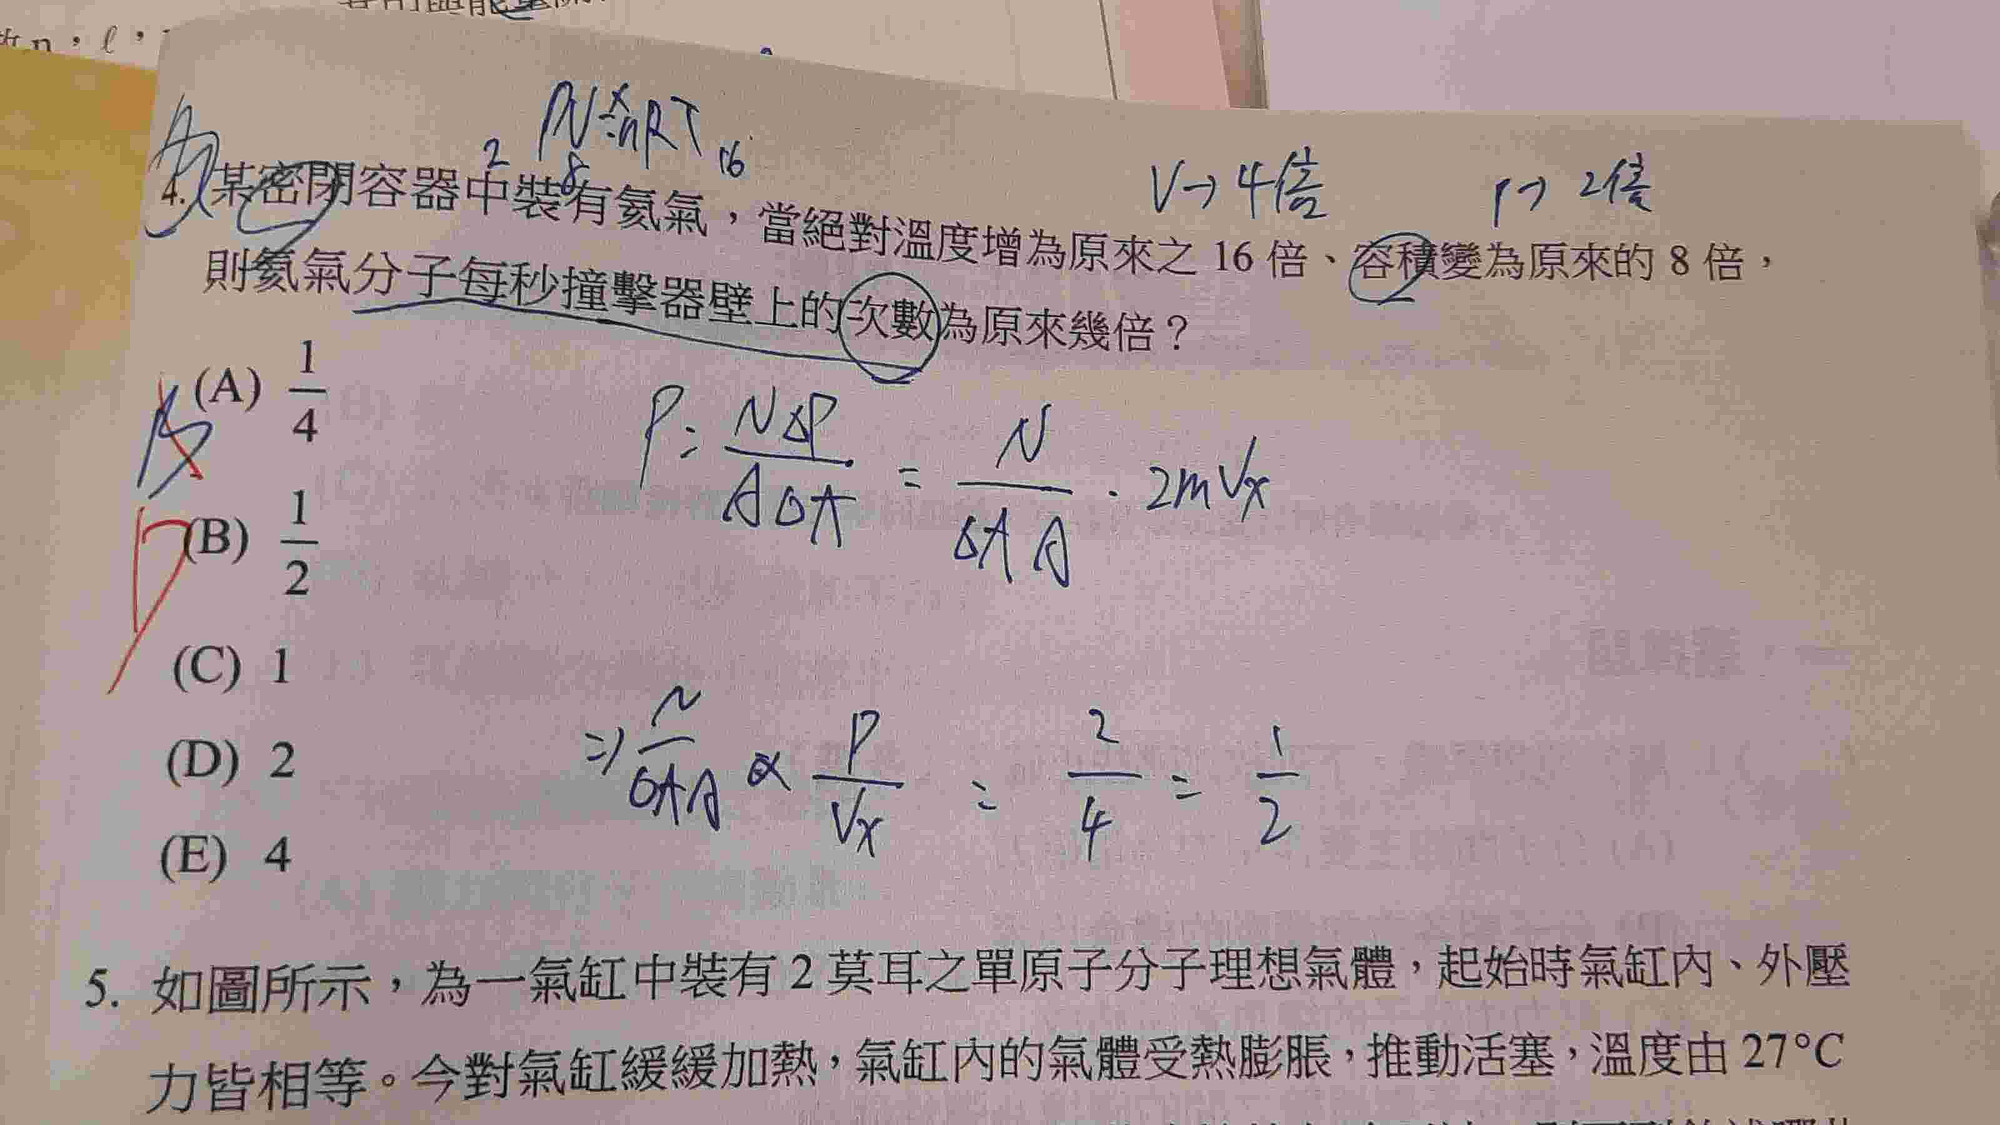 n，ℓ，
PV=nRT
2 8 16
V→4倍 P→2倍
4. 某密閉容器中裝有氦氣，當絕對溫度增為原來之 16 倍、容積變為原來的 8 倍，
則氦氣分子每秒撞擊器壁上的次數為原來幾倍？
(A) 1/4
P= NΔP/AΔt = N/ΔtA · 2mVx
(B) 1/2
(C) 1
(D) 2
⇒ N/ΔtA ∝ P/Vx = 2/4 = 1/2
(E) 4
5. 如圖所示，為一氣缸中裝有 2 莫耳之單原子分子理想氣體，起始時氣缸內、外壓
力皆相等。今對氣缸緩緩加熱，氣缸內的氣體受熱膨脹，推動活塞，溫度由 27°C